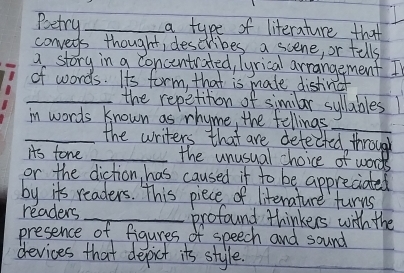 Poetry ________ a type of literature that
conveys thought, describes a scene, or tells
a story in a concentrated, lyrical arrangement
of words. Its form, that is made distinct
________ the repetition of similar syllables
in words known as rhyme, the fellings ________
________ the writers that are detected, through
its tone ________ the unusual choice of words
or the diction, has caused it to be appreciated
by its readers. This piece of literature turns
readers ________ profound thinkers with the
presence of figures of speech and sound
devices that depict its style.